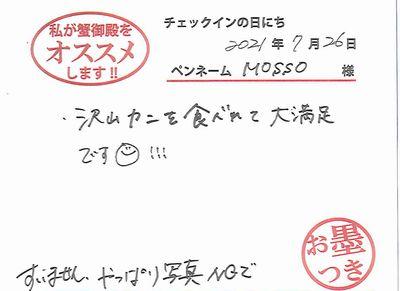 私が蟹御殿を
オススメ
します!!
チェックインの日にち
2021年7月26日
ペンネーム MOSSO 様
・沢山カニを食べれて大満足
です☺!!!
お墨
つき
すいません、やっぱり写真NGで